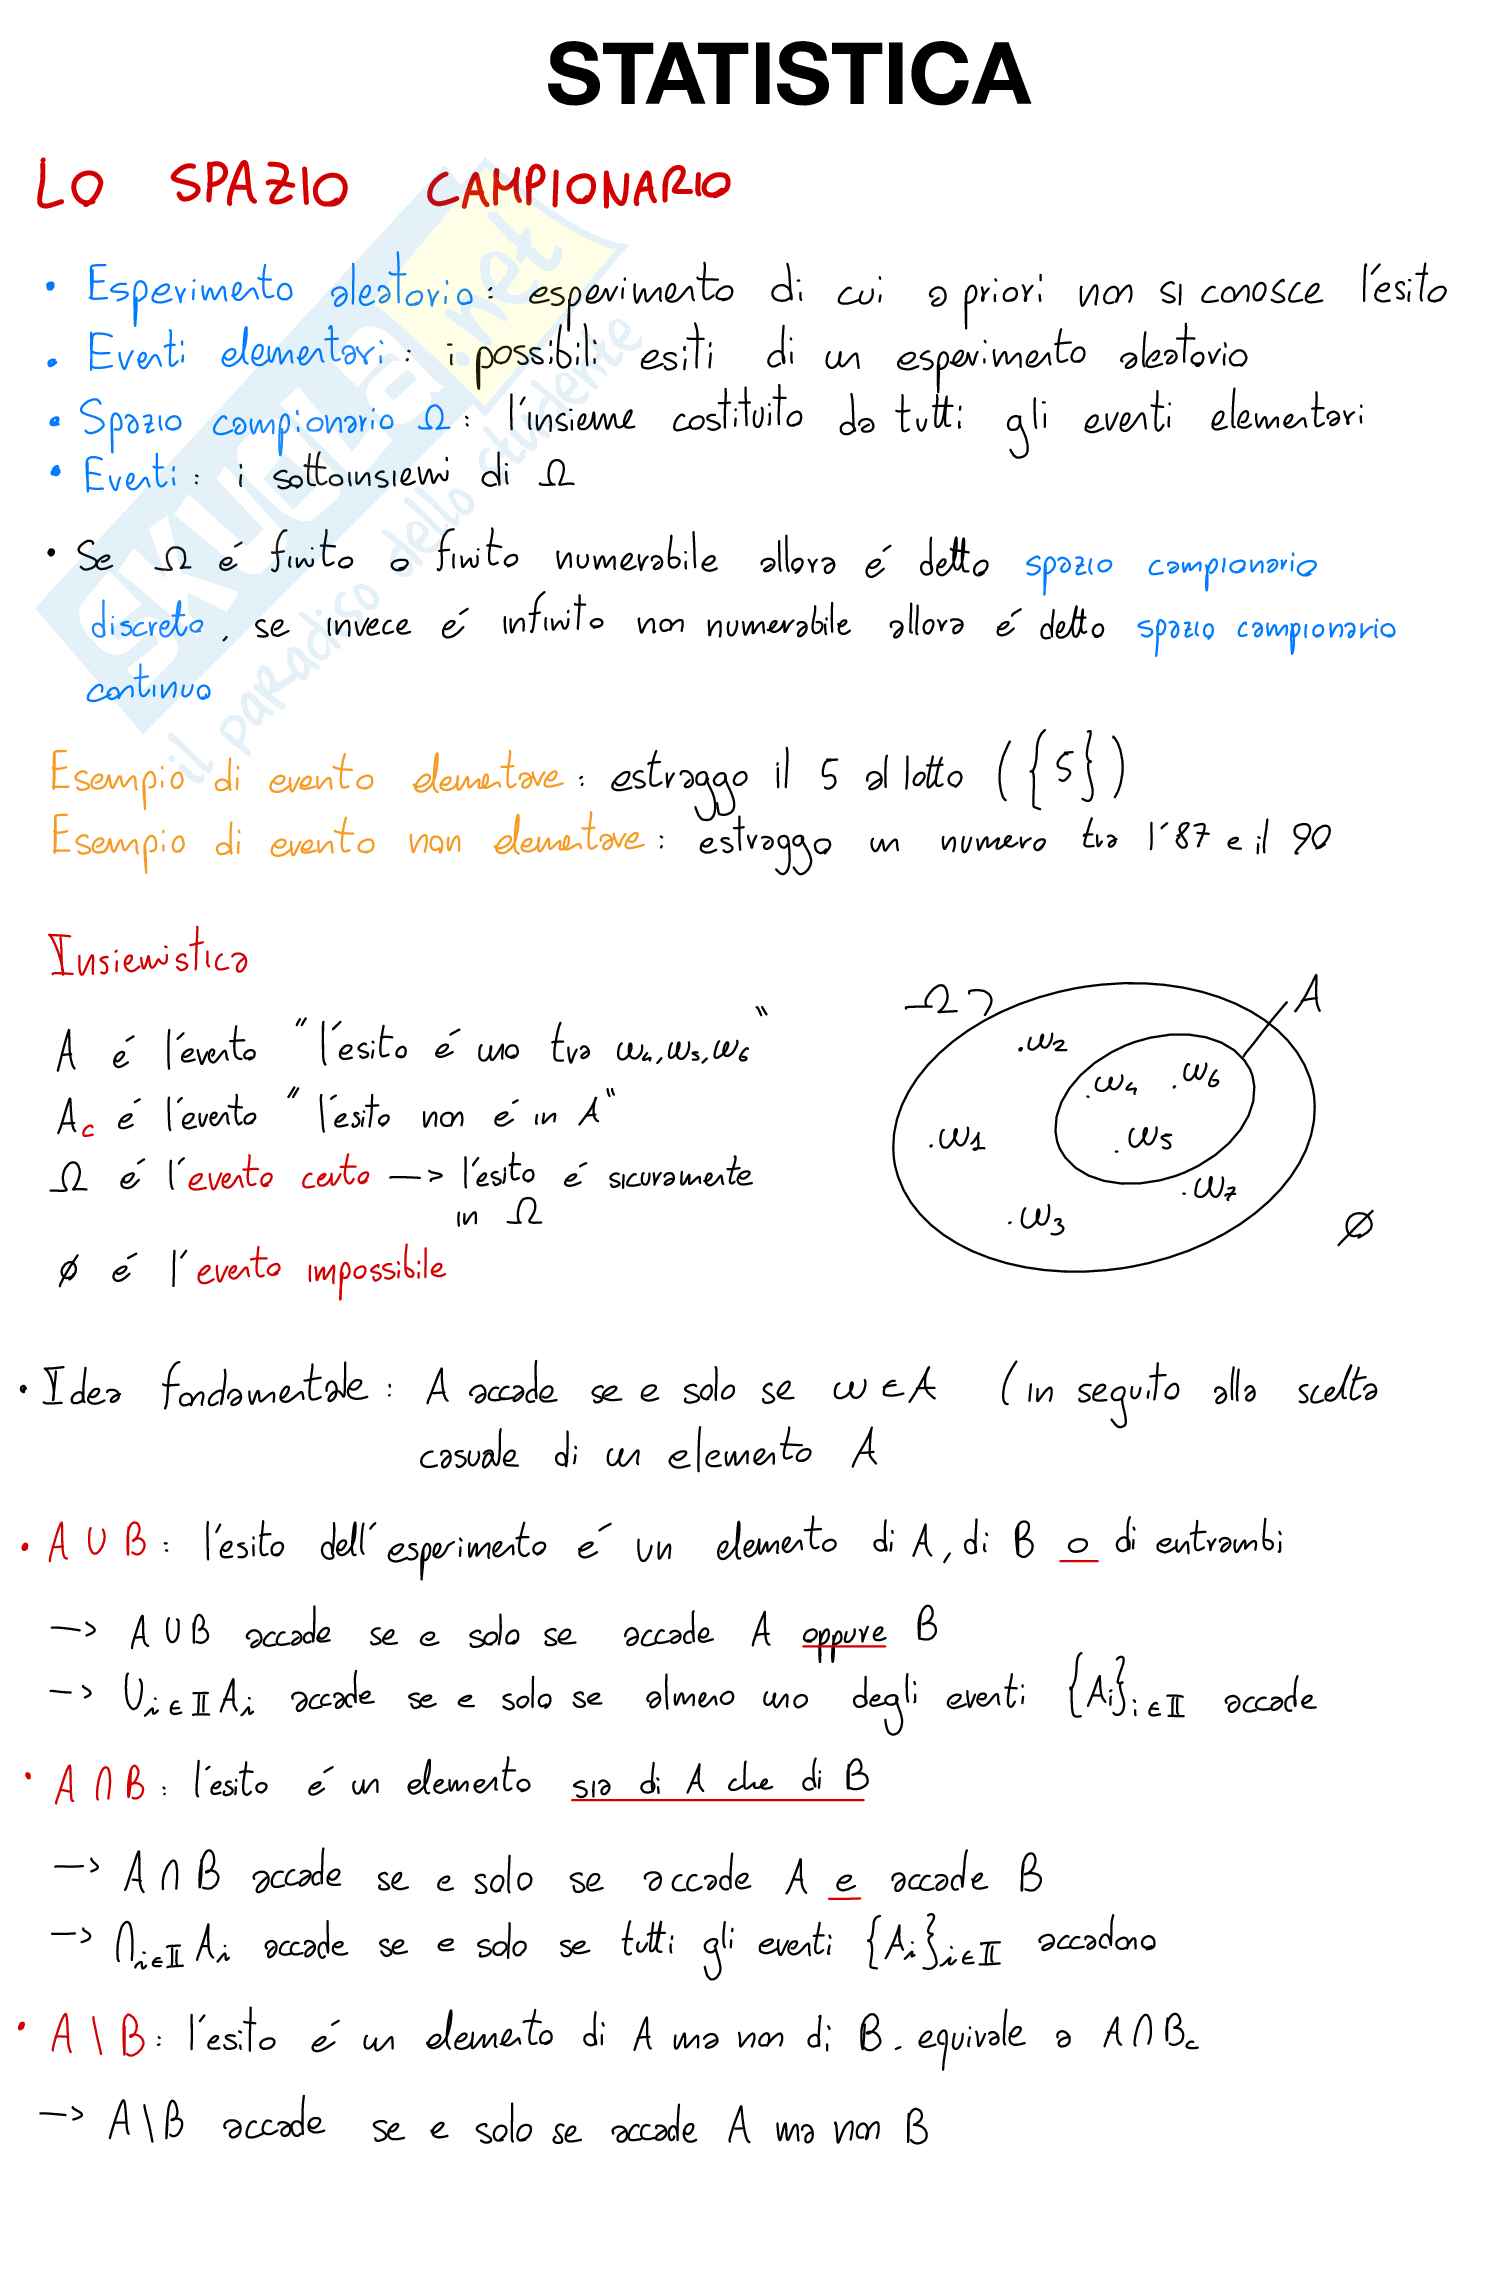 STATISTICA
LO SPAZIO CAMPIONARIO
• Esperimento aleatorio: esperimento di cui a priori non si conosce l'esito
• Eventi elementari: i possibili esiti di un esperimento aleatorio
• Spazio campionario Ω: l'insieme costituito da tutti gli eventi elementari
• Eventi: i sottoinsiemi di Ω
• Se Ω é finito o finito numerabile allora é detto spazio campionario
discreto, se invece é infinito non numerabile allora é detto spazio campionario
continuo
SKUOLA.net
il paradiso dello studente
Esempio di evento elementare: estraggo il 5 al lotto ({5})
Esempio di evento non elementare: estraggo un numero tra l'87 e il 90
Insiemistica
A é l'evento "l'esito é uno tra ω₄,ω₅,ω₆"
A_c é l'evento "l'esito non é in A"
Ω é l'evento certo —> l'esito é sicuramente
in Ω
∅ é l'evento impossibile
Ω A
.ω₂
.ω₄ .ω₆
.ω₁ .ω₅
.ω₇
.ω₃ ∅
• Idea fondamentale: A accade se e solo se ω∈A (in seguito alla scelta
casuale di un elemento A
• A ∪ B: l'esito dell'esperimento é un elemento di A, di B o di entrambi
—> A∪B accade se e solo se accade A oppure B
—> ∪_{i∈𝕀} A_i accade se e solo se almeno uno degli eventi {A_i}_{i∈𝕀} accade
• A ∩ B: l'esito é un elemento sia di A che di B
—> A∩B accade se e solo se accade A e accade B
—> ∩_{i∈𝕀} A_i accade se e solo se tutti gli eventi {A_i}_{i∈𝕀} accadono
• A \ B: l'esito é un elemento di A ma non di B. equivale a A∩B_c
—> A\B accade se e solo se accade A ma non B